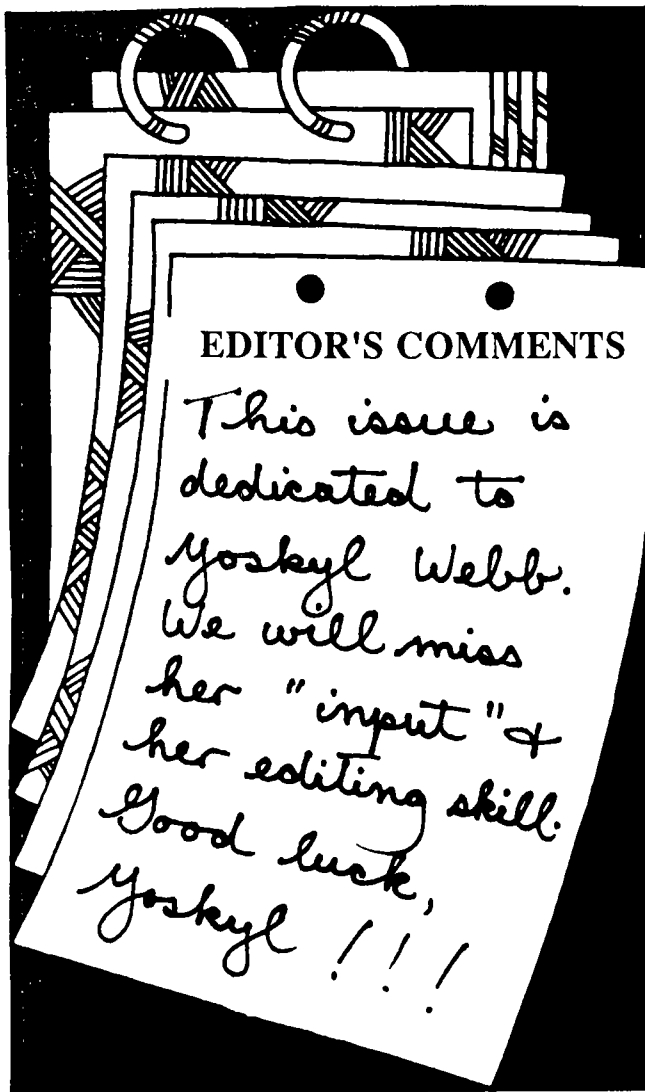 EDITOR'S COMMENTS
This issue is
dedicated to
Yoskyl Webb.
We will miss
her "input" &
her editing skill.
Good luck,
Yoskyl !!!